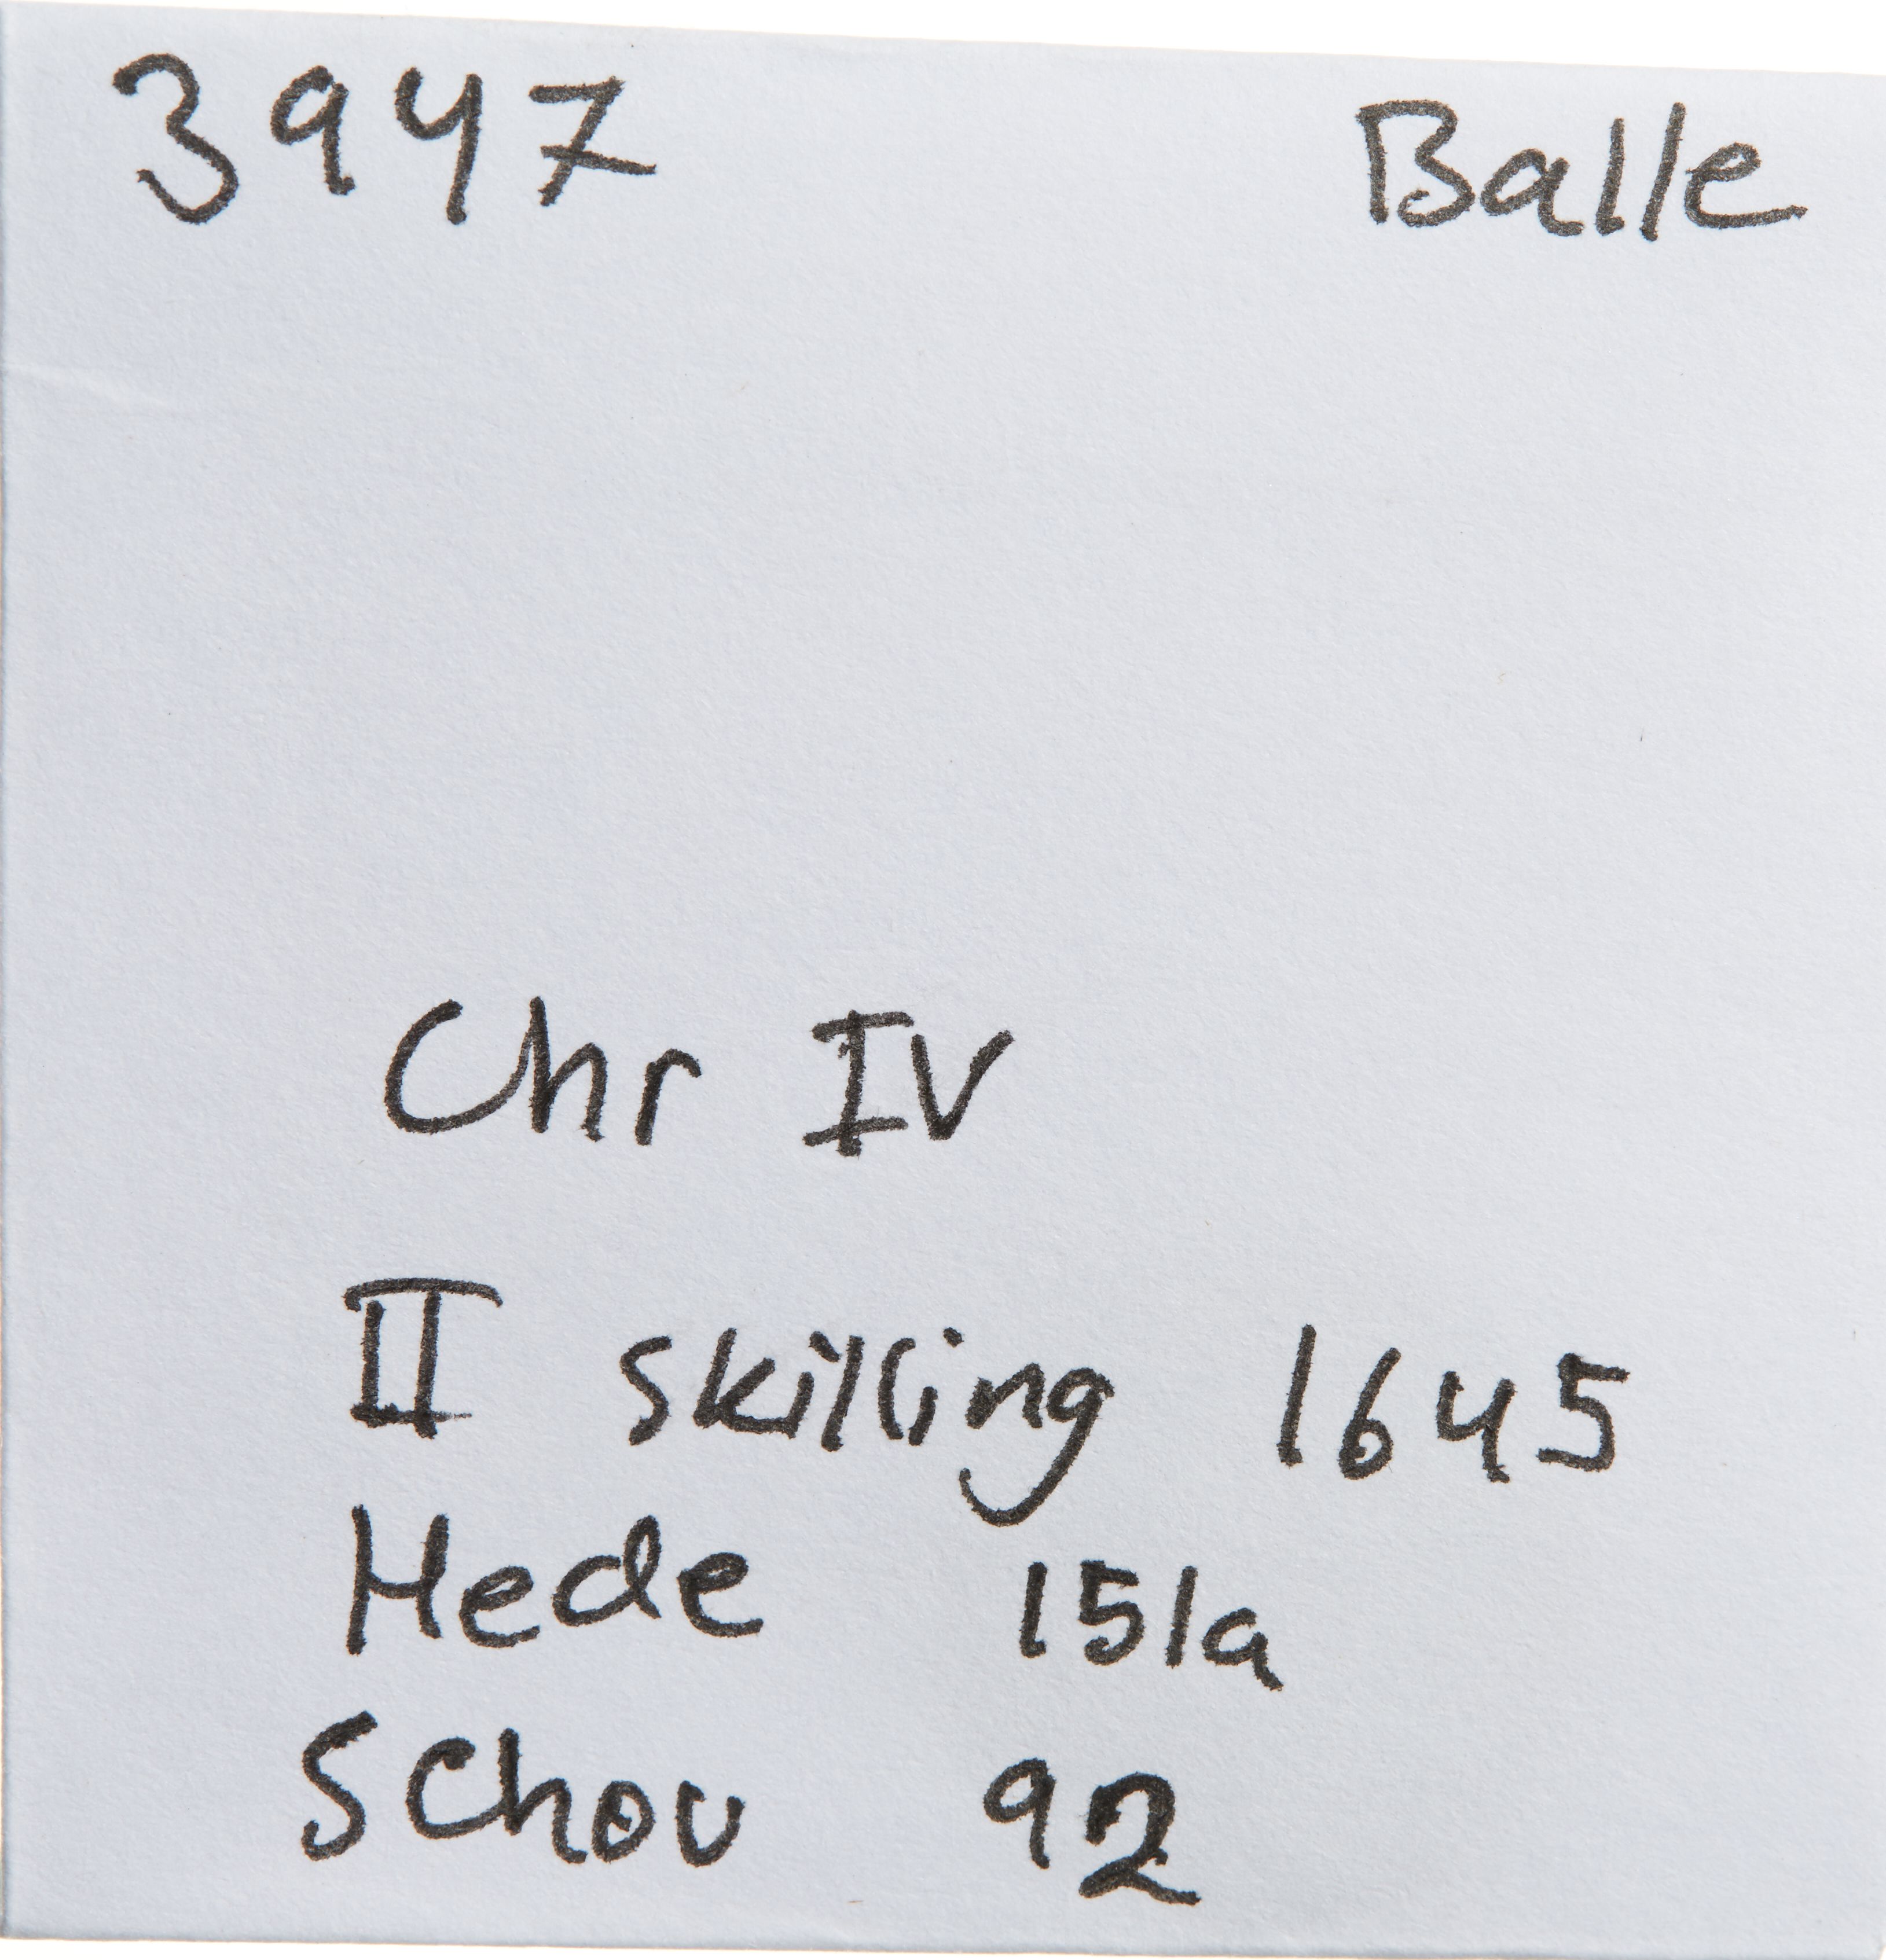 3947 Balle
Chr IV
II skilling 1645
Hede 151a
Schou 92